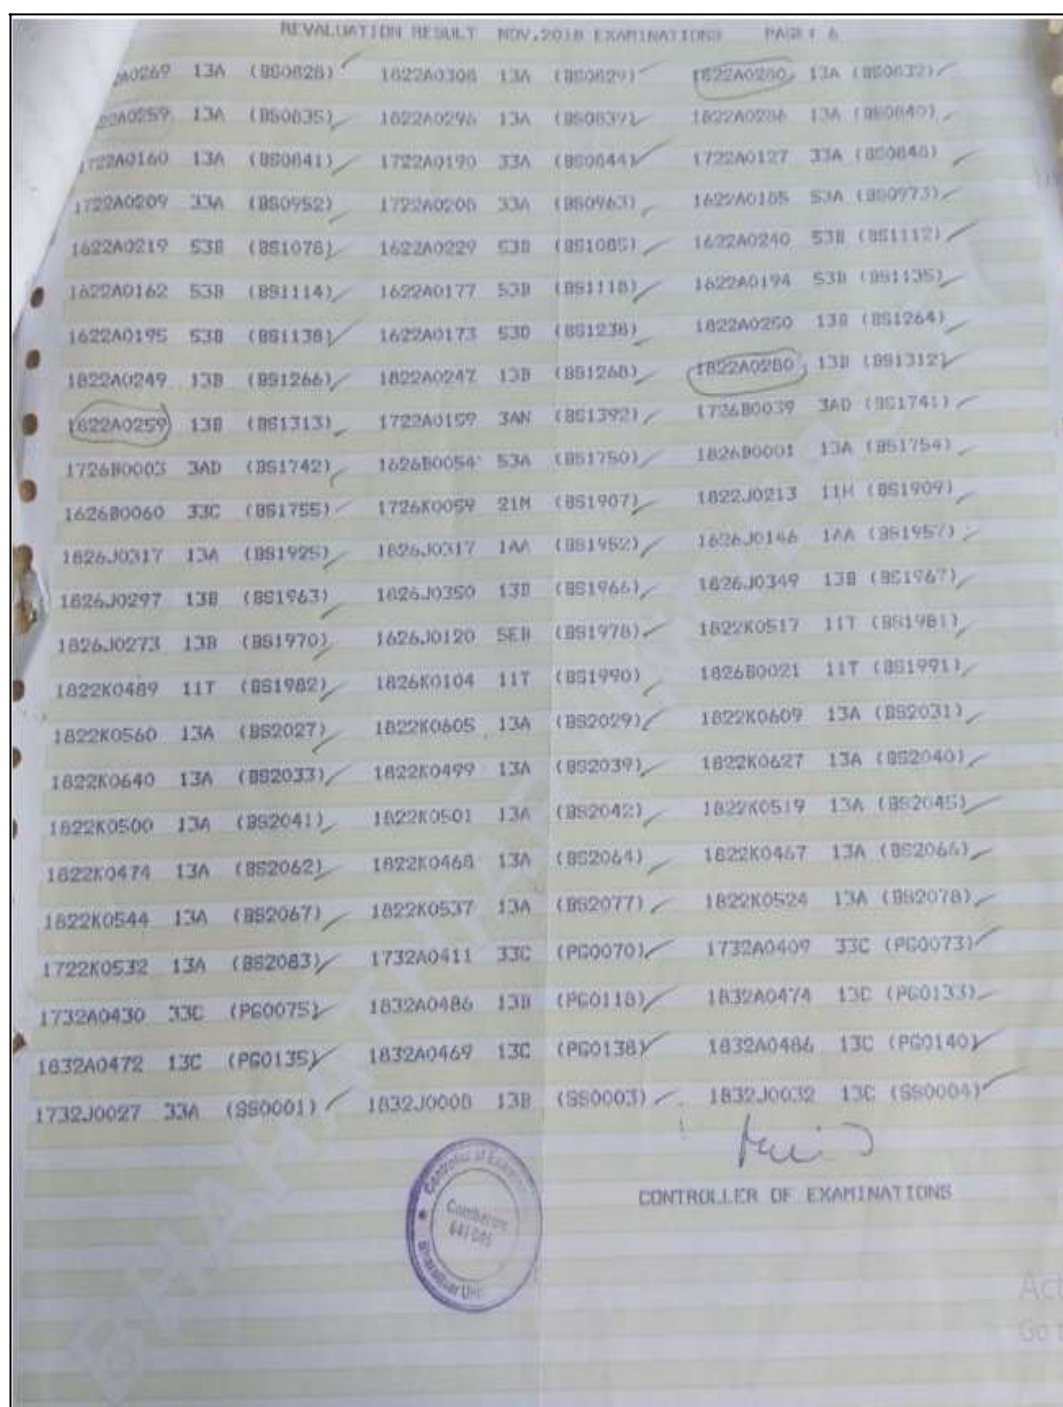 REVALUATION RESULT NOV.2018 EXAMINATIONS PAGE: 6
A0269 13A (BS0828) 1822A0308 13A (BS0829) 1822A0280 13A (BS0832)
A0259 13A (BS0835) 1822A0296 13A (BS0839) 1822A0286 13A (BS0840)
1722A0160 13A (BS0841) 1722A0190 33A (BS0844) 1722A0127 33A (BS0848)
1722A0209 33A (BS0952) 1722A0208 33A (BS0963) 1622A0185 53A (BS0973)
1622A0219 53B (BS1078) 1622A0229 53B (BS1085) 1622A0240 53B (BS1112)
1622A0162 53B (BS1114) 1622A0177 53B (BS1118) 1622A0194 53B (BS1135)
1622A0195 53B (BS1138) 1622A0173 53D (BS1238) 1822A0250 13B (BS1264)
1822A0249 13B (BS1266) 1822A0247 13B (BS1268) 1822A0280 13B (BS1312)
1822A0259 13B (BS1313) 1722A0159 3AN (BS1392) 1726B0039 3AD (BS1741)
1726B0003 3AD (BS1742) 1626B0054 53A (BS1750) 1826B0001 13A (BS1754)
1626B0060 33C (BS1755) 1726K0059 21M (BS1907) 1822J0213 11H (BS1909)
1826J0317 13A (BS1925) 1826J0317 1AA (BS1952) 1626J0146 1AA (BS1957)
1826J0297 13B (BS1963) 1826J0350 13B (BS1966) 1826J0349 13B (BS1967)
1826J0273 13B (BS1970) 1626J0120 5EB (BS1978) 1822K0517 11T (BS1981)
1822K0489 11T (BS1982) 1826K0104 11T (BS1990) 1826B0021 11T (BS1991)
1822K0560 13A (BS2027) 1822K0605 13A (BS2029) 1822K0609 13A (BS2031)
1822K0640 13A (BS2033) 1822K0499 13A (BS2039) 1822K0627 13A (BS2040)
1822K0500 13A (BS2041) 1822K0501 13A (BS2042) 1822K0519 13A (BS2045)
1822K0474 13A (BS2062) 1822K0468 13A (BS2064) 1822K0467 13A (BS2066)
1822K0544 13A (BS2067) 1822K0537 13A (BS2077) 1822K0524 13A (BS2078)
1722K0532 13A (BS2083) 1732A0411 33C (PG0070) 1732A0409 33C (PG0073)
1732A0430 33C (PG0075) 1832A0486 13B (PG0118) 1832A0474 13C (PG0133)
1832A0472 13C (PG0135) 1832A0469 13C (PG0138) 1832A0486 13C (PG0140)
1732J0027 33A (SS0001) 1832J0008 13B (SS0003) 1832J0032 13C (SS0004)
CONTROLLER OF EXAMINATIONS
Controller of
Coimbatore
Go